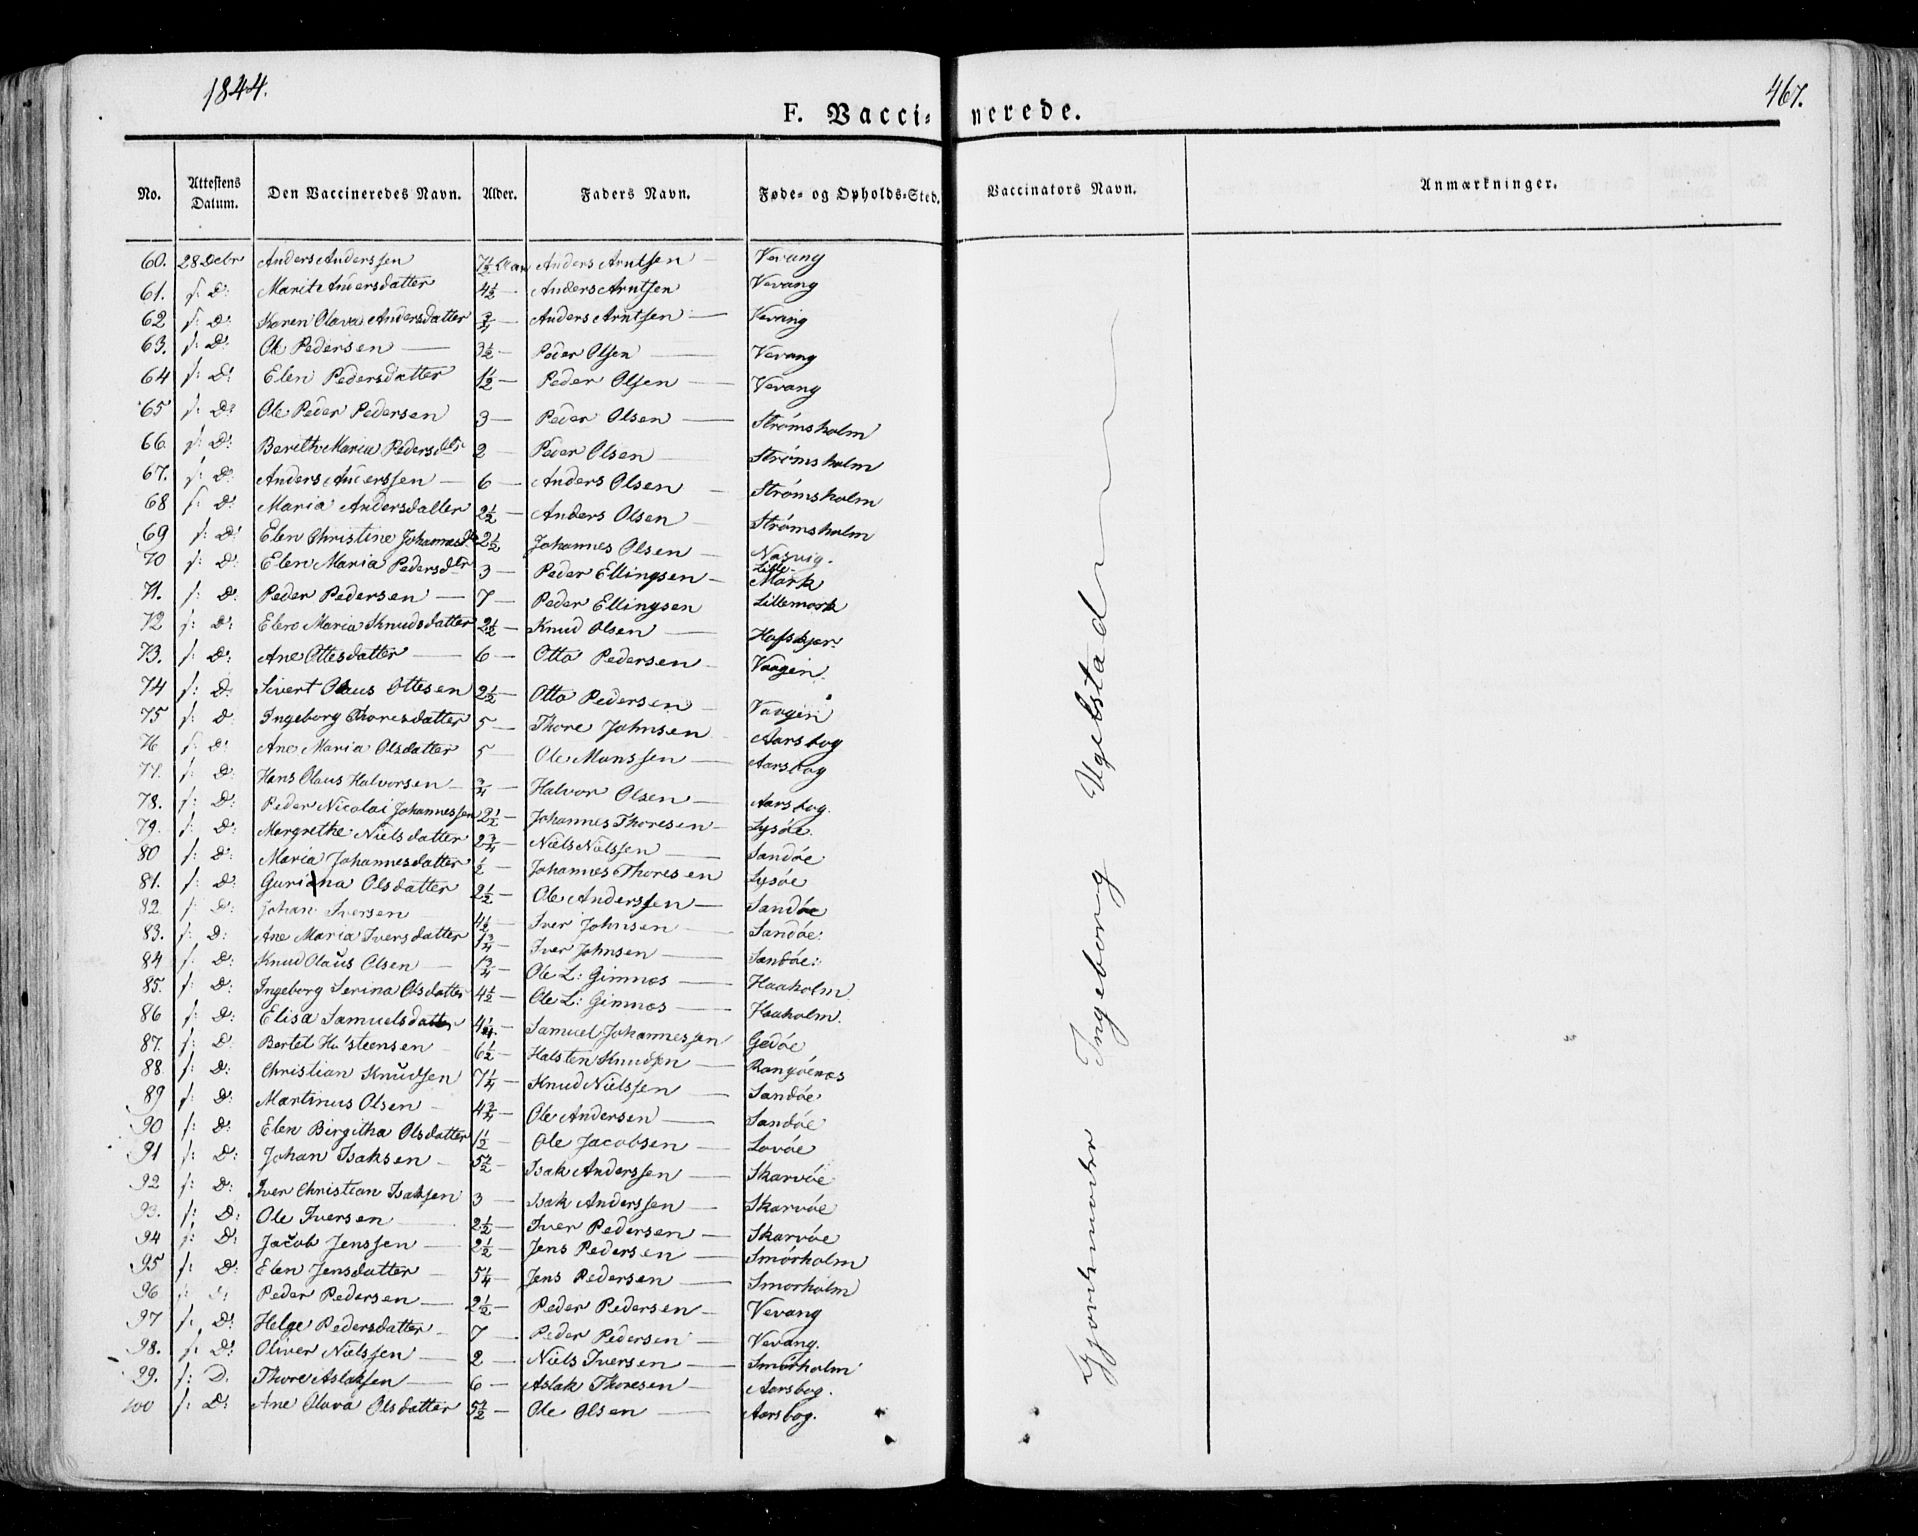 1844.
467.
F. Vacci- nerede.
No. Attestens Datum. Den Vaccineredes Navn. Alder. Faders Navn. Føde- og Opholds-Sted. Vaccinators Navn. Anmærkninger.
60. 28 Decbr Anders Anderssen 7½ Aar Anders Arntsen — Vevang
61. s: D: Marit Andersdatter 4½ — Anders Arntsen Vevang
62 s: D: Karen Olava Andersdatter ¾ — Anders Arntsen — Vevang
63. s: D: Ole Pedersen — 3½ — Peder Olsen — Vevang
64 s: D: Elen Pedersdatter 1½ — Peder Olsen — Vevang
65 s: D: Ole Peder Pedersen 3 — Peder Olsen — Strømsholm
66. s: D: Berith Maria Pedersdtr 2 — Peder Olsen — Strømsholm
67. s: D: Anders Anderssen — 6 — Anders Olsen — Strømsholm
68 s: D: Maria Andersdatter 2½ — Anders Olsen — Strømsholm
69 s: D: Elen Christine Johannesdtr 2½ Johannes Olsen — Nasvig.
70 s: D: Elen Maria Pedersdtr 3 — Peder Ellingsen — Lille-Mork
71. s: D: Peder Pedersen — 7 — Peder Ellingsen Lillemork
72 s: D: Elen Maria Knudsdatter 2½ — Knud Olsen — Hafskjær
73. s: D: Ane Ottesdatter — 6 — Otto Pedersen — Vaagen
74 s: D: Sivert Olaus Ottesen 2½ — Otto Pedersen — Vaagen
75 s: D: Ingeborg Thoresdatter 5 — Thore Johnsen — Aarsbog
76 s: D: Ane Maria Olsdatter 5 — Ole Monssen — Aarsbog
77. s: D: Hans Olaus Halvorsen — ¾ — Halvor Olsen — Aarsbog.
78. s: D: Peder Nicolai Johannessen 2½ — Johannes Thoresen — Lysöe
79. s: D: Margrethe Nielsdatter 2¾ — Niels Nielssen — Sandöe
80 s: D: Maria Johannesdatter ½ — Johannes Thoresen Lysöe
81. s: D: Guriana Olsdatter 2½ — Ole Anderssen — Sandöe
82 s: D: Johan Iversen 4½ — Iver Johnsen — Sandöe:
83. s: D: Ane Maria Iversdatter 1¾ — Iver Johnsen — Sandöe:
84 s: D: Knud Olaus Olsen — 1¾ — Ole L: Gimnæs — Haaholm
85. s: D: Ingeborg Serina Olsdatter 4½ — Ole L: Gimnæs — Haaholm.
86 s: D: Elisa Samuelsdatter 4¼ — Samuel Johannessen Gedöe
87. s: D: Bertel Halsteensen — 6½ — Halsten Knudsen — Rangöenæs
88 s: D: Christian Knudsen 7¼ — Knud Nielssen — Sandöe
89 s: D: Martinus Olsen — 4¾ — Ole Andersen — Sandöe
90 s: D: Elen Birgitha Olsdatter 1½ — Ole Jacobsen — Lovöe
91 s: D: Johan Isaksen — 5½ — Isak Anderssen — Skarvöe
92 s: D: Iver Christian Isaksen 3 — Isak Anderssen — Skarvöe
93. s: D: Ole Iversen — 2½ — Iver Pedersen — Skarvöe
94 s: D: Jacob Jenssen — 2½ — Jens Pedersen — Smörholm
95 s: D: Elen Jensdatter — 5¼ — Jens Pedersen — Smorholm
96 s: D: Peder Pedersen — 2½ — Peder Pedersen — Vevang
97 s: D: Helge Pedersdatter — 7 — Peder Pedersen — Vevang.
98. s: D: Oliver Nielssen — 2 — Niels Iversen — Smörholm
99. s: D. Thore Aslaksen — 6 — Aslak Thoresen — Aarsbog.
100 s: D: Ane Olava Olsdatter 5½ — Ole Olsen — Aarsbog.
Gjordemoder Ingeborg Ugelstad